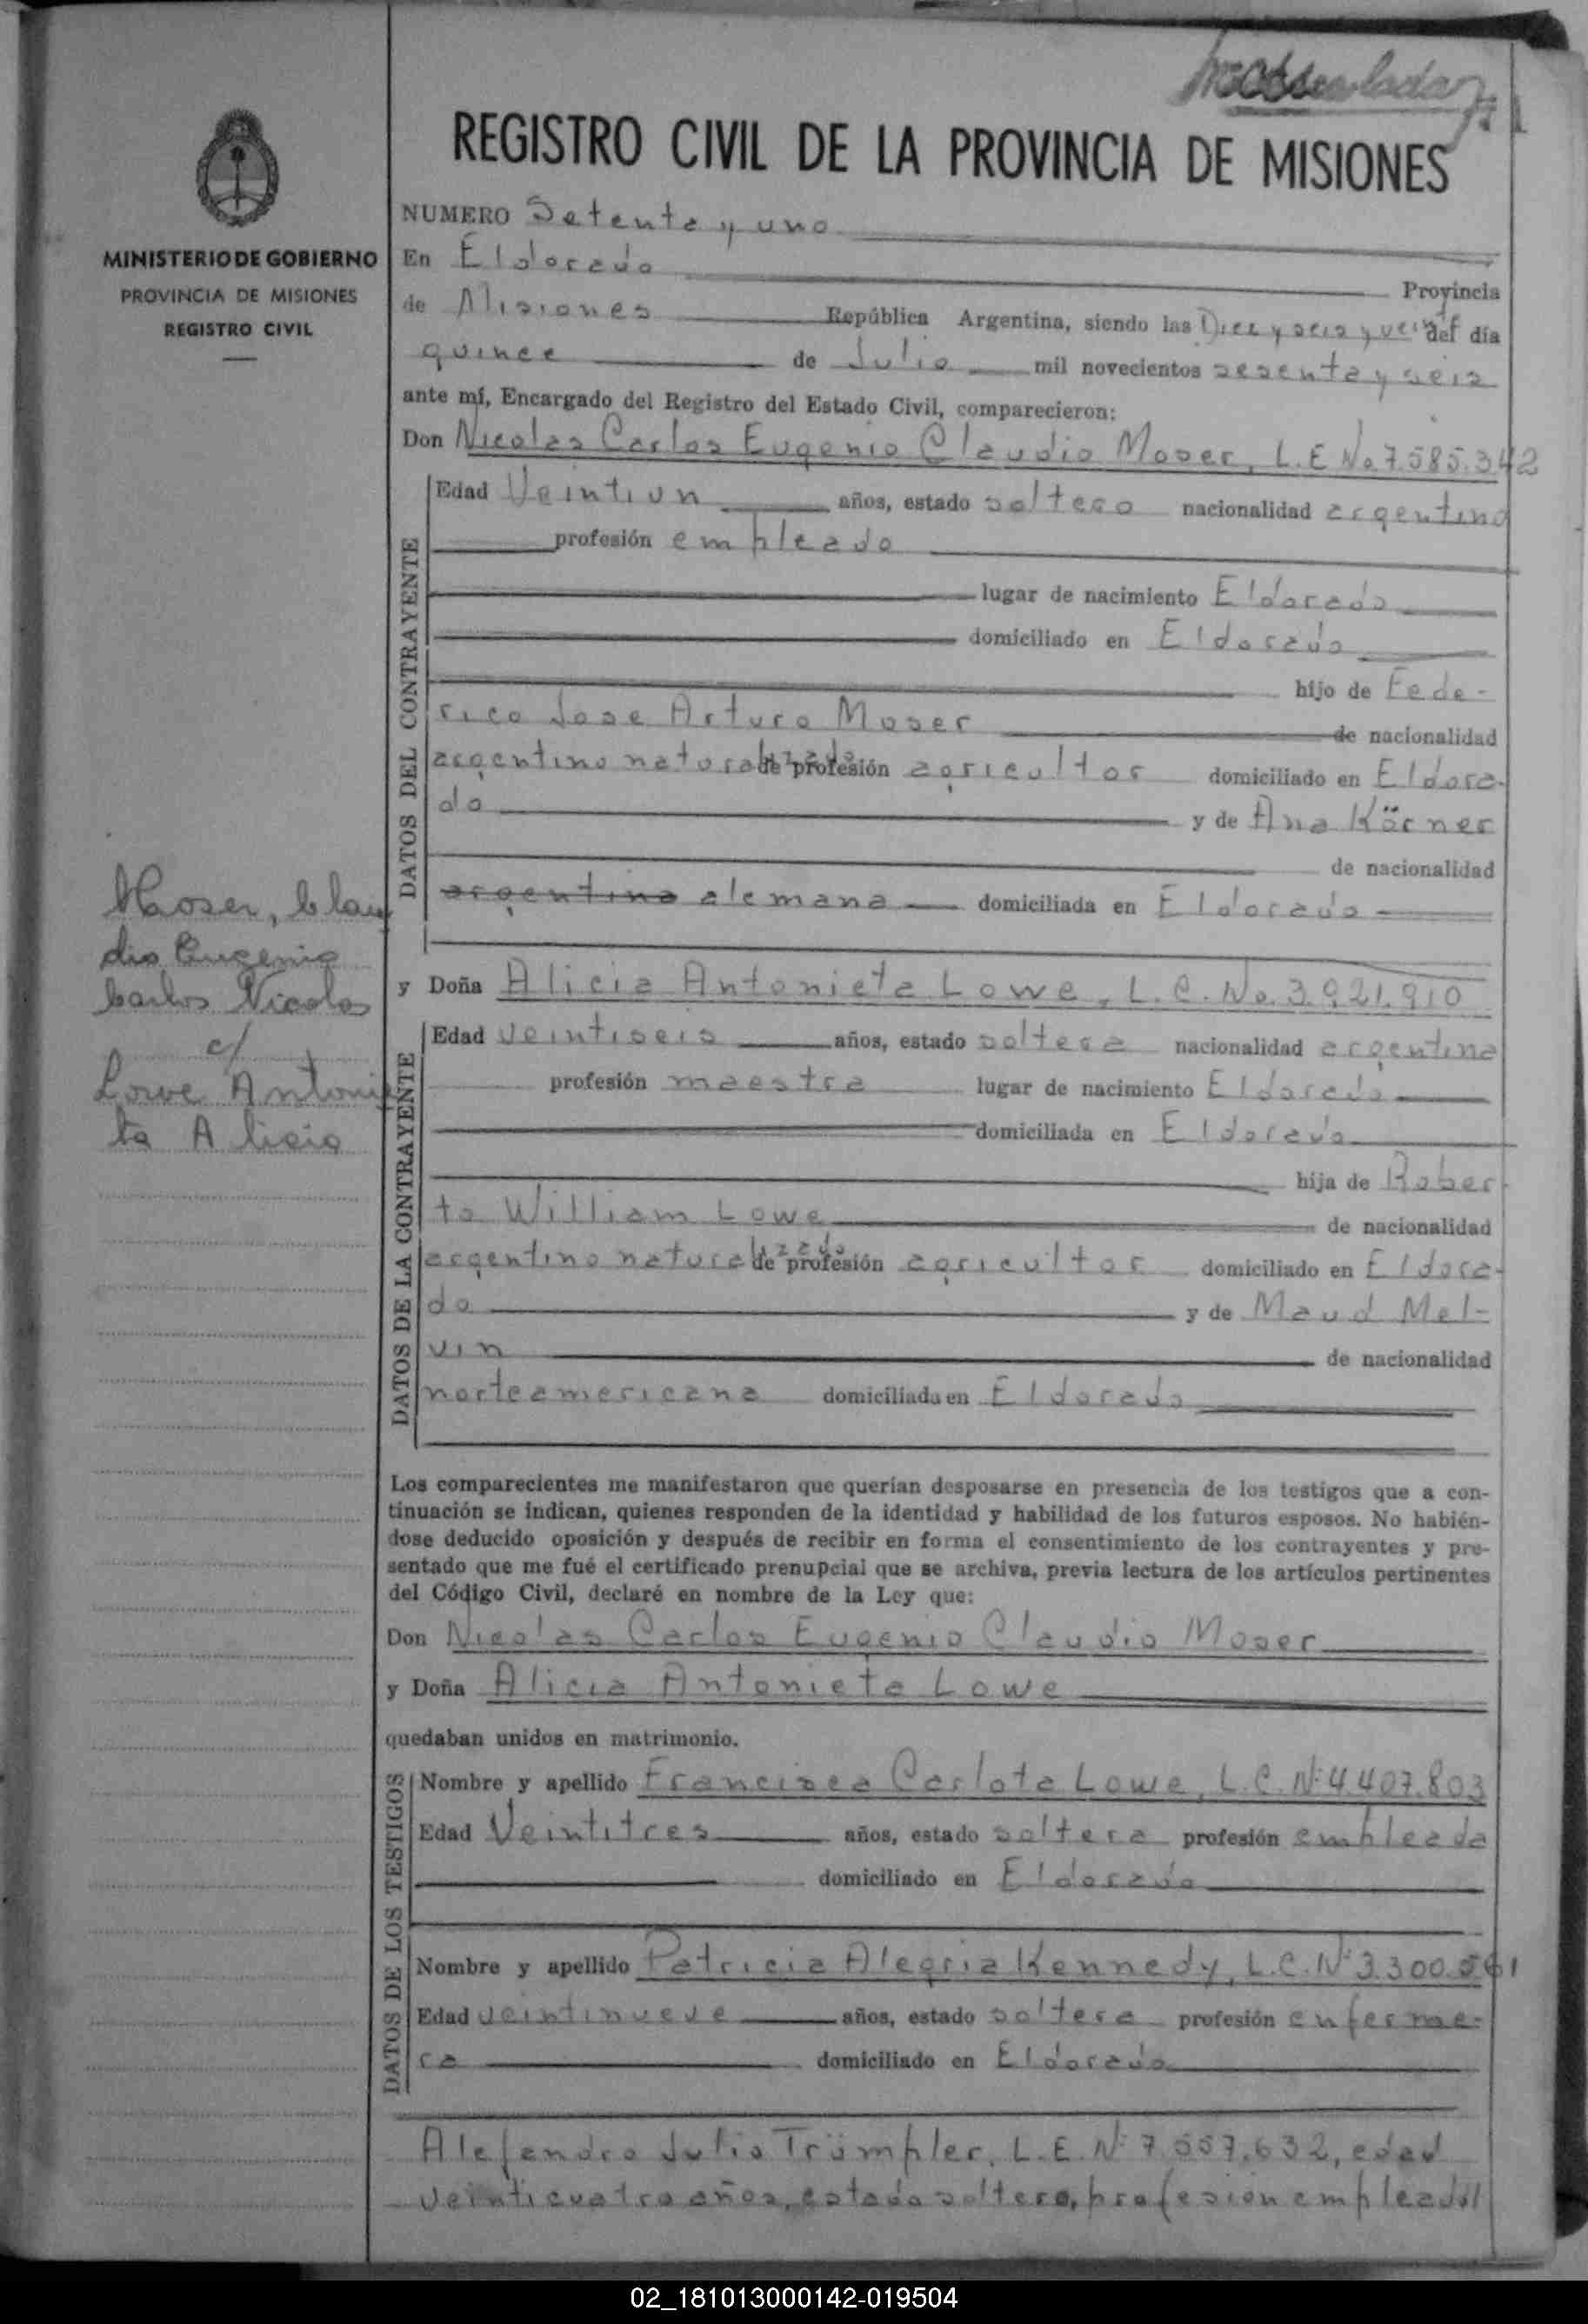 REGISTRO CIVIL DE LA PROVINCIA DE MISIONES
MINISTERIO DE GOBIERNO
PROVINCIA DE MISIONES
REGISTRO CIVIL
NUMERO Setenta y uno
En Eldorado Provincia
de Misiones República Argentina, siendo las Diez y seis y del día
quince de Julio mil novecientos sesenta y seis
ante mí, Encargado del Registro del Estado Civil, comparecieron:
Don Nicolas Carlos Eugenio Claudio Moser, L.E No 7.585.342
DATOS DEL CONTRAYENTE
Edad Veintiun años, estado soltero nacionalidad argentino
profesión empleado
lugar de nacimiento Eldorado
domiciliado en Eldorado
hijo de Fede-
rico Jose Arturo Moser de nacionalidad
argentino naturalizado de profesión agricultor domiciliado en Eldora-
do y de Ana Körner
de nacionalidad
argentina alemana domiciliada en Eldorado
Moser, Clau
dio Eugenio
Carlos Nicolas
c/
Lowe Antonie
ta Alicia
y Doña Alicia Antonieta Lowe, L.C. No. 3.921.910
DATOS DE LA CONTRAYENTE
Edad veintiseis años, estado soltera nacionalidad argentina
profesión maestra lugar de nacimiento Eldorado
domiciliada en Eldorado
hija de Rober
to William Lowe de nacionalidad
argentino naturalizado de profesión agricultor domiciliado en Eldora-
do y de Maud Mel-
vin de nacionalidad
norteamericana domiciliada en Eldorado
Los comparecientes me manifestaron que querían desposarse en presencia de los testigos que a con-
tinuación se indican, quienes responden de la identidad y habilidad de los futuros esposos. No habién-
dose deducido oposición y después de recibir en forma el consentimiento de los contrayentes y pre-
sentado que me fué el certificado prenupcial que se archiva, previa lectura de los artículos pertinentes
del Código Civil, declaré en nombre de la Ley que:
Don Nicolas Carlos Eugenio Claudio Moser
y Doña Alicia Antonieta Lowe
quedaban unidos en matrimonio.
DATOS DE LOS TESTIGOS
Nombre y apellido Francisca Carlota Lowe, L.C. Nº 4.407.803
Edad Veintitres años, estado soltera profesión empleada
domiciliado en Eldorado
Nombre y apellido Patricia Alegria Kennedy, L.C. Nº 3.300.561
Edad veintinueve años, estado soltera profesión enferme-
ra domiciliado en Eldorado
Alejandro Julio Trümpler, L.E. Nº 7.557.632, edad
veinticuatro años, estado soltero, profesion empleado
02_181013000142-019504